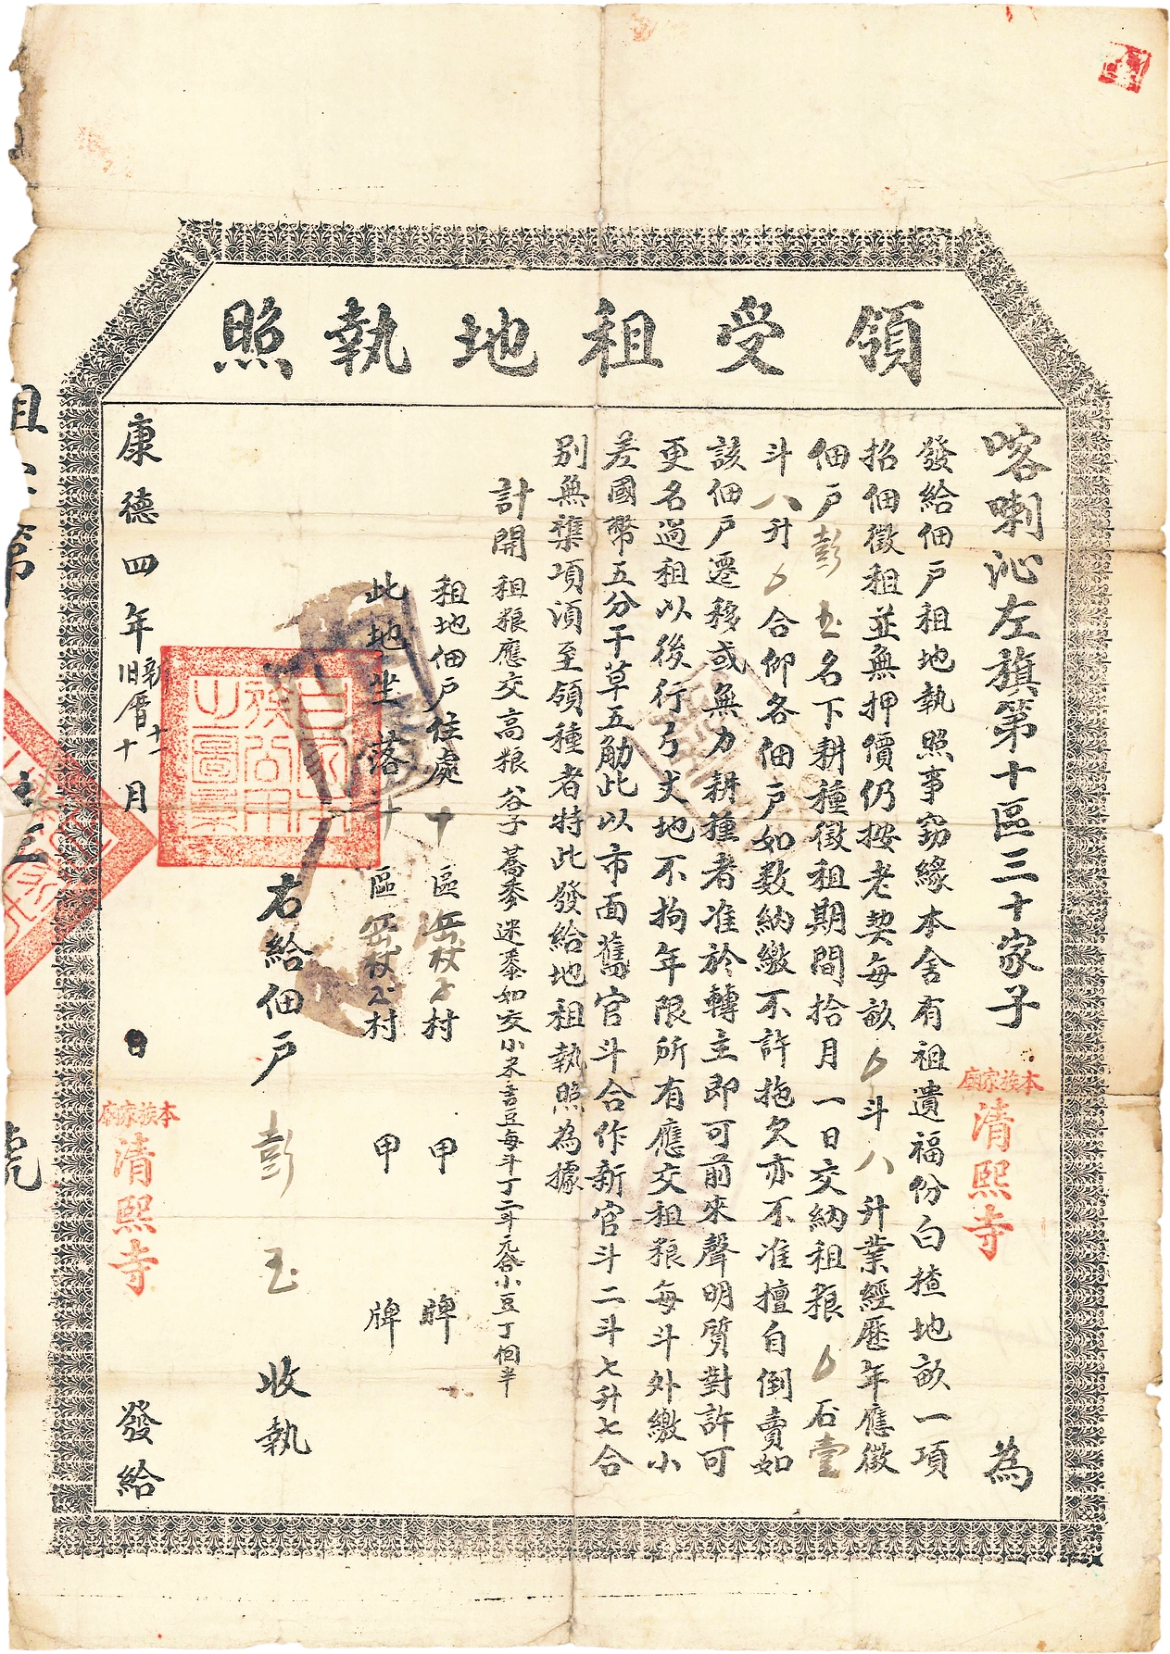 領受租地執照
喀喇沁左旗第十區三十家子
本族家廟
清熙寺
為
發給佃戶租地執照事窃緣本舍有祖遺福份白揸地畝一項
招佃徵租並無押價仍按老契每畝 斗八升業經歷年應徵
佃戶彭玉名下耕種徵租期間拾月一日交納租粮 石壹
斗八升 合仰各佃戶如数納繳不許拖欠亦不准擅自倒賣如
該佃戶遷移或無力耕種者准於轉主即可前來聲明質對許可
更名過租以後行弓丈地不拘年限所有應交租粮每斗外繳小
差國幣五分干草五觔此以市面舊官斗合作新官斗二斗七升七合
別無襍項須至領種者特此發給地租執照為據
計開
租粮應交高粮谷子蕎麥迷黍如交小米吉豆每斗丁二斗元合小豆丁個半
租地佃戶住處十區 村 甲 牌
此地坐落十區 村 甲 牌
右給佃戶彭玉收執
康德四年新十一旧曆十月 日
本族家廟
清熙寺
發給